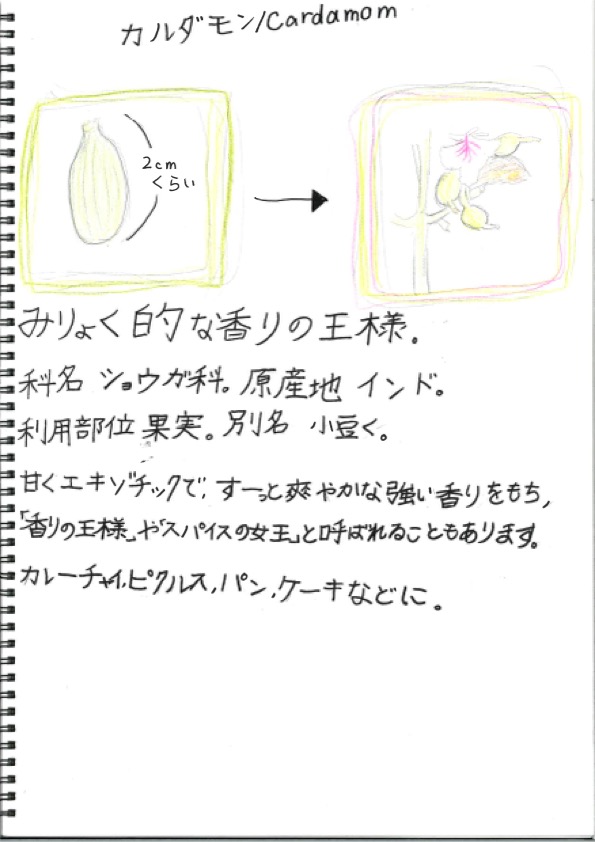 カルダモン/Cardamom
2cm
くらい
みりょく的な香りの王様。
科名 ショウガ科。原産地 インド。
利用部位 果実。別名 小豆く。
甘くエキゾチックで、すーっと爽やかな強い香りをもち,
「香りの王様」や「スパイスの女王」と呼ばれることもあります。
カレーチャイ,ピクルス,パン,ケーキなどに。